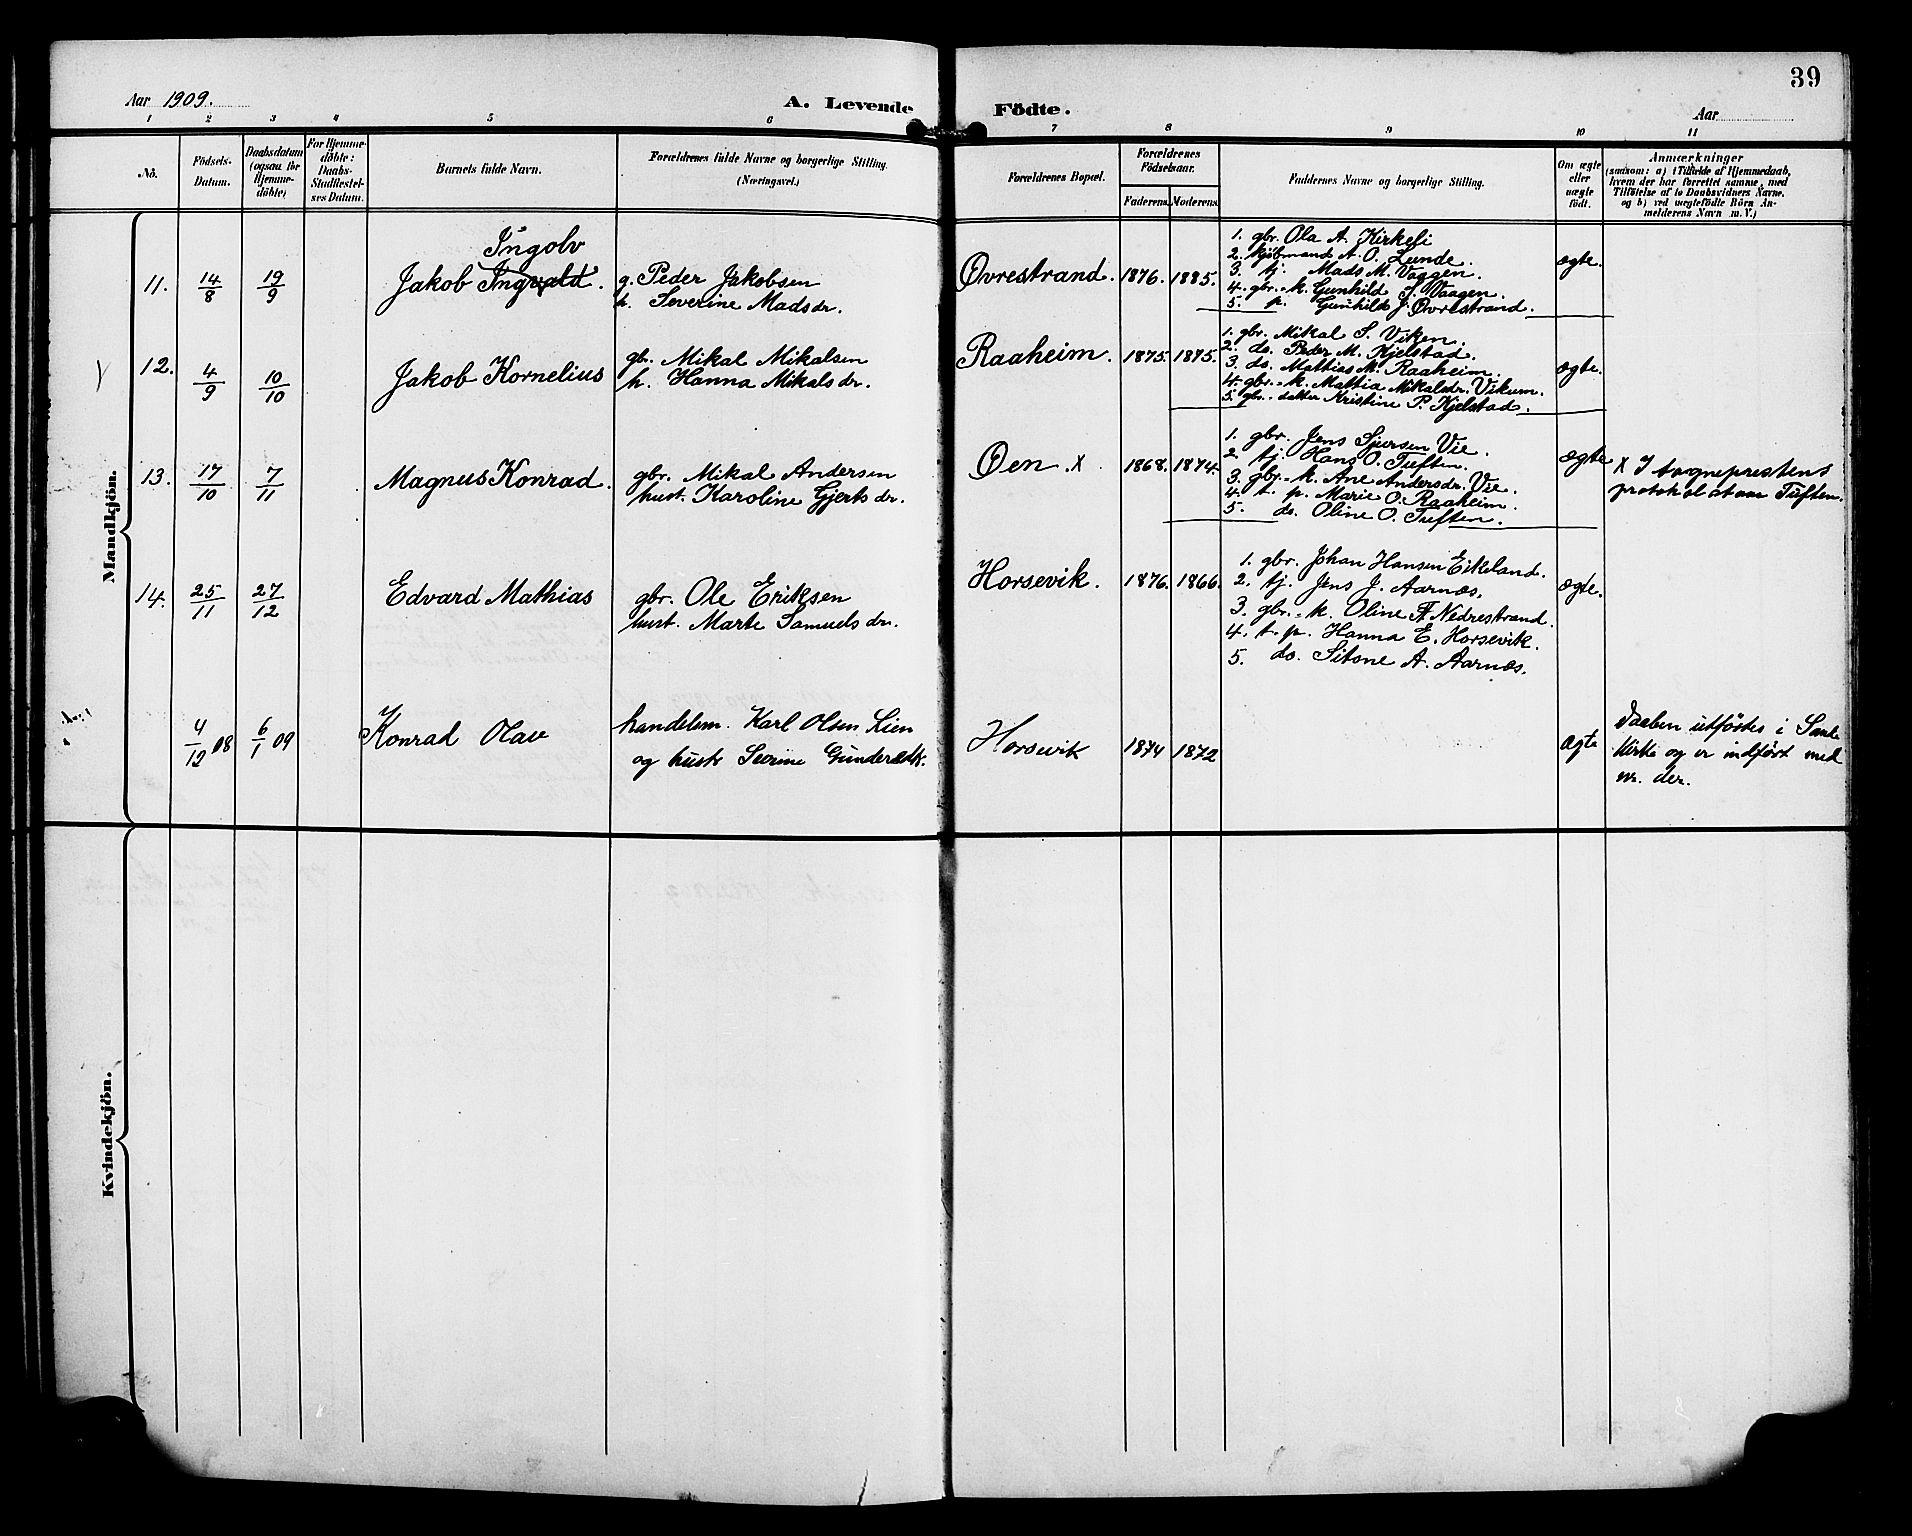 39
Aar 1909. A. Levende Födte. Aar
1 2 3 4 5 6 7 8 9 10 11
No.
Födsels-Datum.
Daabsdatum (ogsaa for Hjemme-döbte)
For Hjemme-döbte: Daabs-Stadfæstel-ses Datum.
Barnets fulde Navn.
Forældrenes fulde Navne og borgerlige Stilling.
(Næringsvei.)
Forældrenes Bopæl.
Forældrenes Födselsaar.
Faderens. Moderens.
Faddernes Navne og borgerlige Stilling.
Om ægte eller uægte födt.
Anmærkninger
(saasom: a) i Tilfælde af Hjemmedaab,
hvem der har forrettet samme, med
Tilföielse af to Daabsvidners Navne.
og b) ved uægtefödte Börn An-
melderens Navn m. V.)
Mandkjön.
11. 14/8 19/9 Jakob Ingvald. Ingolv
g. Peder Jakobsen
h. Severine Madsdr.
Øvrestrand. 1876. 1885.
1. gbr. Ola A. Kirkeli
2. kjöbmand A. O. Lunde.
3. tj. Mads M. Vaagen.
4. gbr.-k. Gunhild J. Vaagen.
5. p. Gunhild J. Øvrestrand.
ægte.
12. 4/9 10/10 Jakob Kornelius
gbr. Mikal Mikalsen
h. Hanna Mikalsdr.
Raaheim. 1875. 1875.
1. gbr. Mikal S. Viken.
2. do. Peder M. Kjelstad.
3. do. Mathias M. Raaheim.
4. gbr.-k. Mattia Mikalsdr. Vikum.
5. gbr.-datter Kristine P. Kjelstad.
ægte.
13. 17/10 7/11 Magnus Konrad.
gbr. Mikal Andersen
hust. Karoline Gjertsdr.
Øen. x 1868. 1874.
1. gbr. Jens Sjursen Vie.
2. tj. Hans O. Tuften.
3. gbr.-k. Ane Andersdr. Vie.
4. t. p. Marie O. Raaheim.
5. do. Oline O. Tuften.
ægte
x I sogneprestens
protokol staar Tuften.
14. 25/11 27/12 Edvard Mathias
gbr. Ole Eriksen
hust. Marte Samuelsdr.
Horsevik. 1876. 1866.
1. gbr. Johan Hansen Eikeland.
2. tj. Jens J. Aarnæs.
3. gbr.-k. Oline A Nedrestrand.
4. t. p. Hanna E. Horsevik.
5. do. Sitsne A. Aarnæs.
ægte.
4/12 08 6/1 09 Konrad Olav
handelsm. Karl Olsen Lien
og hustr Severine Gunderedtr.
Horsevik 1874 1872
ægte
Daaben utförtes i Sande
Kirke og er indfört med
nr. der.
Kvindekjön.